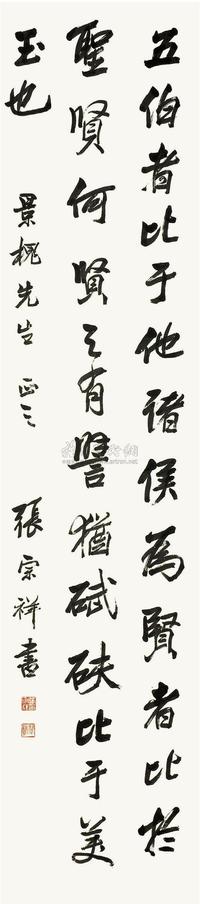 五伯者比于他諸侯為賢者比於
聖賢何賢之有譬猶碔砆比于美
玉也
景桃先生 正之
張宗祥書